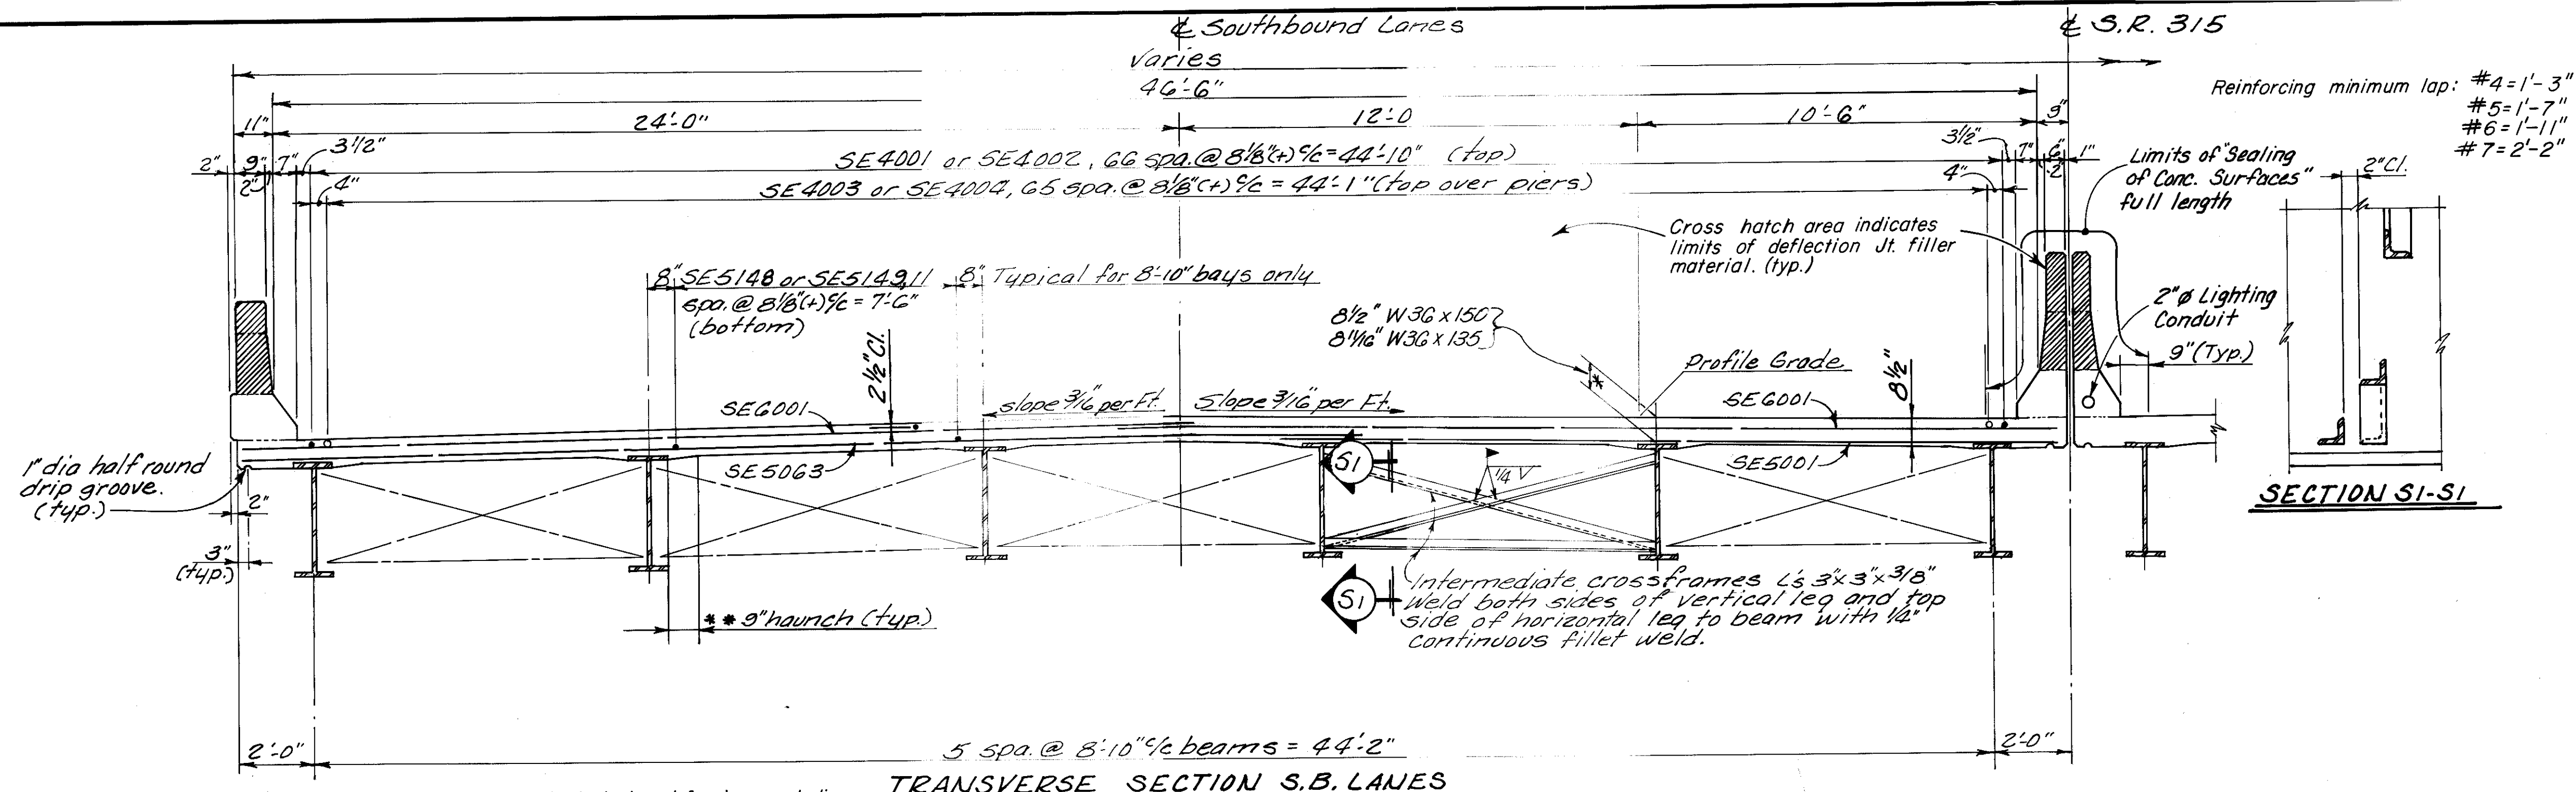 ℄ Southbound Lanes
℄ S.R. 315
varies
46'-6"
Reinforcing minimum lap: #4=1'-3"
#5=1'-7"
#6=1'-11"
#7=2'-2"
11"
24'-0"
12'-0
10'-6"
9"
2"
9"
2"
7"
3 1/2"
SE4001 or SE4002, 66 spa.@ 8 1/8"(+) c/c = 44'-10" (top)
3 1/2"
7"
6"
2"
1"
4"
SE4003 or SE4004, 65 spa.@ 8 1/8"(+) c/c = 44'-1" (top over piers)
4"
Limits of "Sealing
of Conc. Surfaces"
full length
2" Cl.
Cross hatch area indicates
limits of deflection Jt. filler
material. (typ.)
8" SE5148 or SE5149, 11
spa.@ 8 1/8"(+) c/c = 7'-6"
(bottom)
8" Typical for 8'-10" bays only
2"ø Lighting
Conduit
8 1/2" W36 x 150
8 11/16" W36 x 135
9"(Typ.)
2 1/2" Cl.
*
Profile Grade
8 1/2"
SE6001
slope 3/16 per Ft.
Slope 3/16 per Ft.
SE6001
1" dia half round
drip groove.
(typ.)
SE5063
S1
1/4 V
SE5001
SECTION S1-S1
2"
3"
(typ.)
S1
Intermediate crossframes L's 3"x3"x3/8"
Weld both sides of vertical leg and top
side of horizontal leg to beam with 1/4"
continuous fillet weld.
** 9" haunch (typ.)
2'-0"
5 spa. @ 8'-10" c/c beams = 44'-2"
2'-0"
TRANSVERSE SECTION S.B. LANES